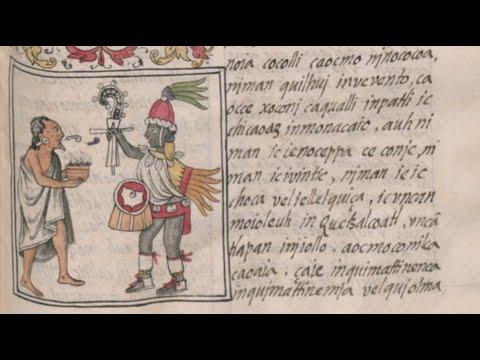 noia cocolli caocmo njnococoa,
njman quilhuj inveveнto, ca
occe xoconj caqualli inpatli ic
chicaoaz inmonacaio, auh nj
man ic ienoceppa ce conjc, nj
man ic ivintic, njman ie ic
choca vel iellelquiça, icvncan
moioleuh in Quetzalcoatl, vncã
tlapan injiollo, aocmoconilca
caoaia, çaie inquimattinenca
inquimattinemja velquiolma